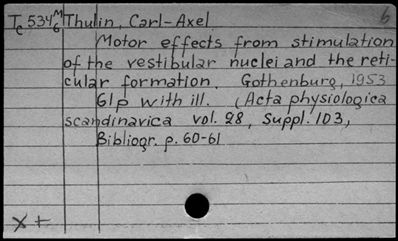 Tc 534 M6 Thulin, Carl-Axel 6
Motor effects from stimulation
of the vestibular nuclei and the reti-
cular formation. Gothenburg, 1953
61p with ill. (Acta physiologica
scandinavica vol. 28, Suppl. 103,
Bibliogr. p. 60-61
x +